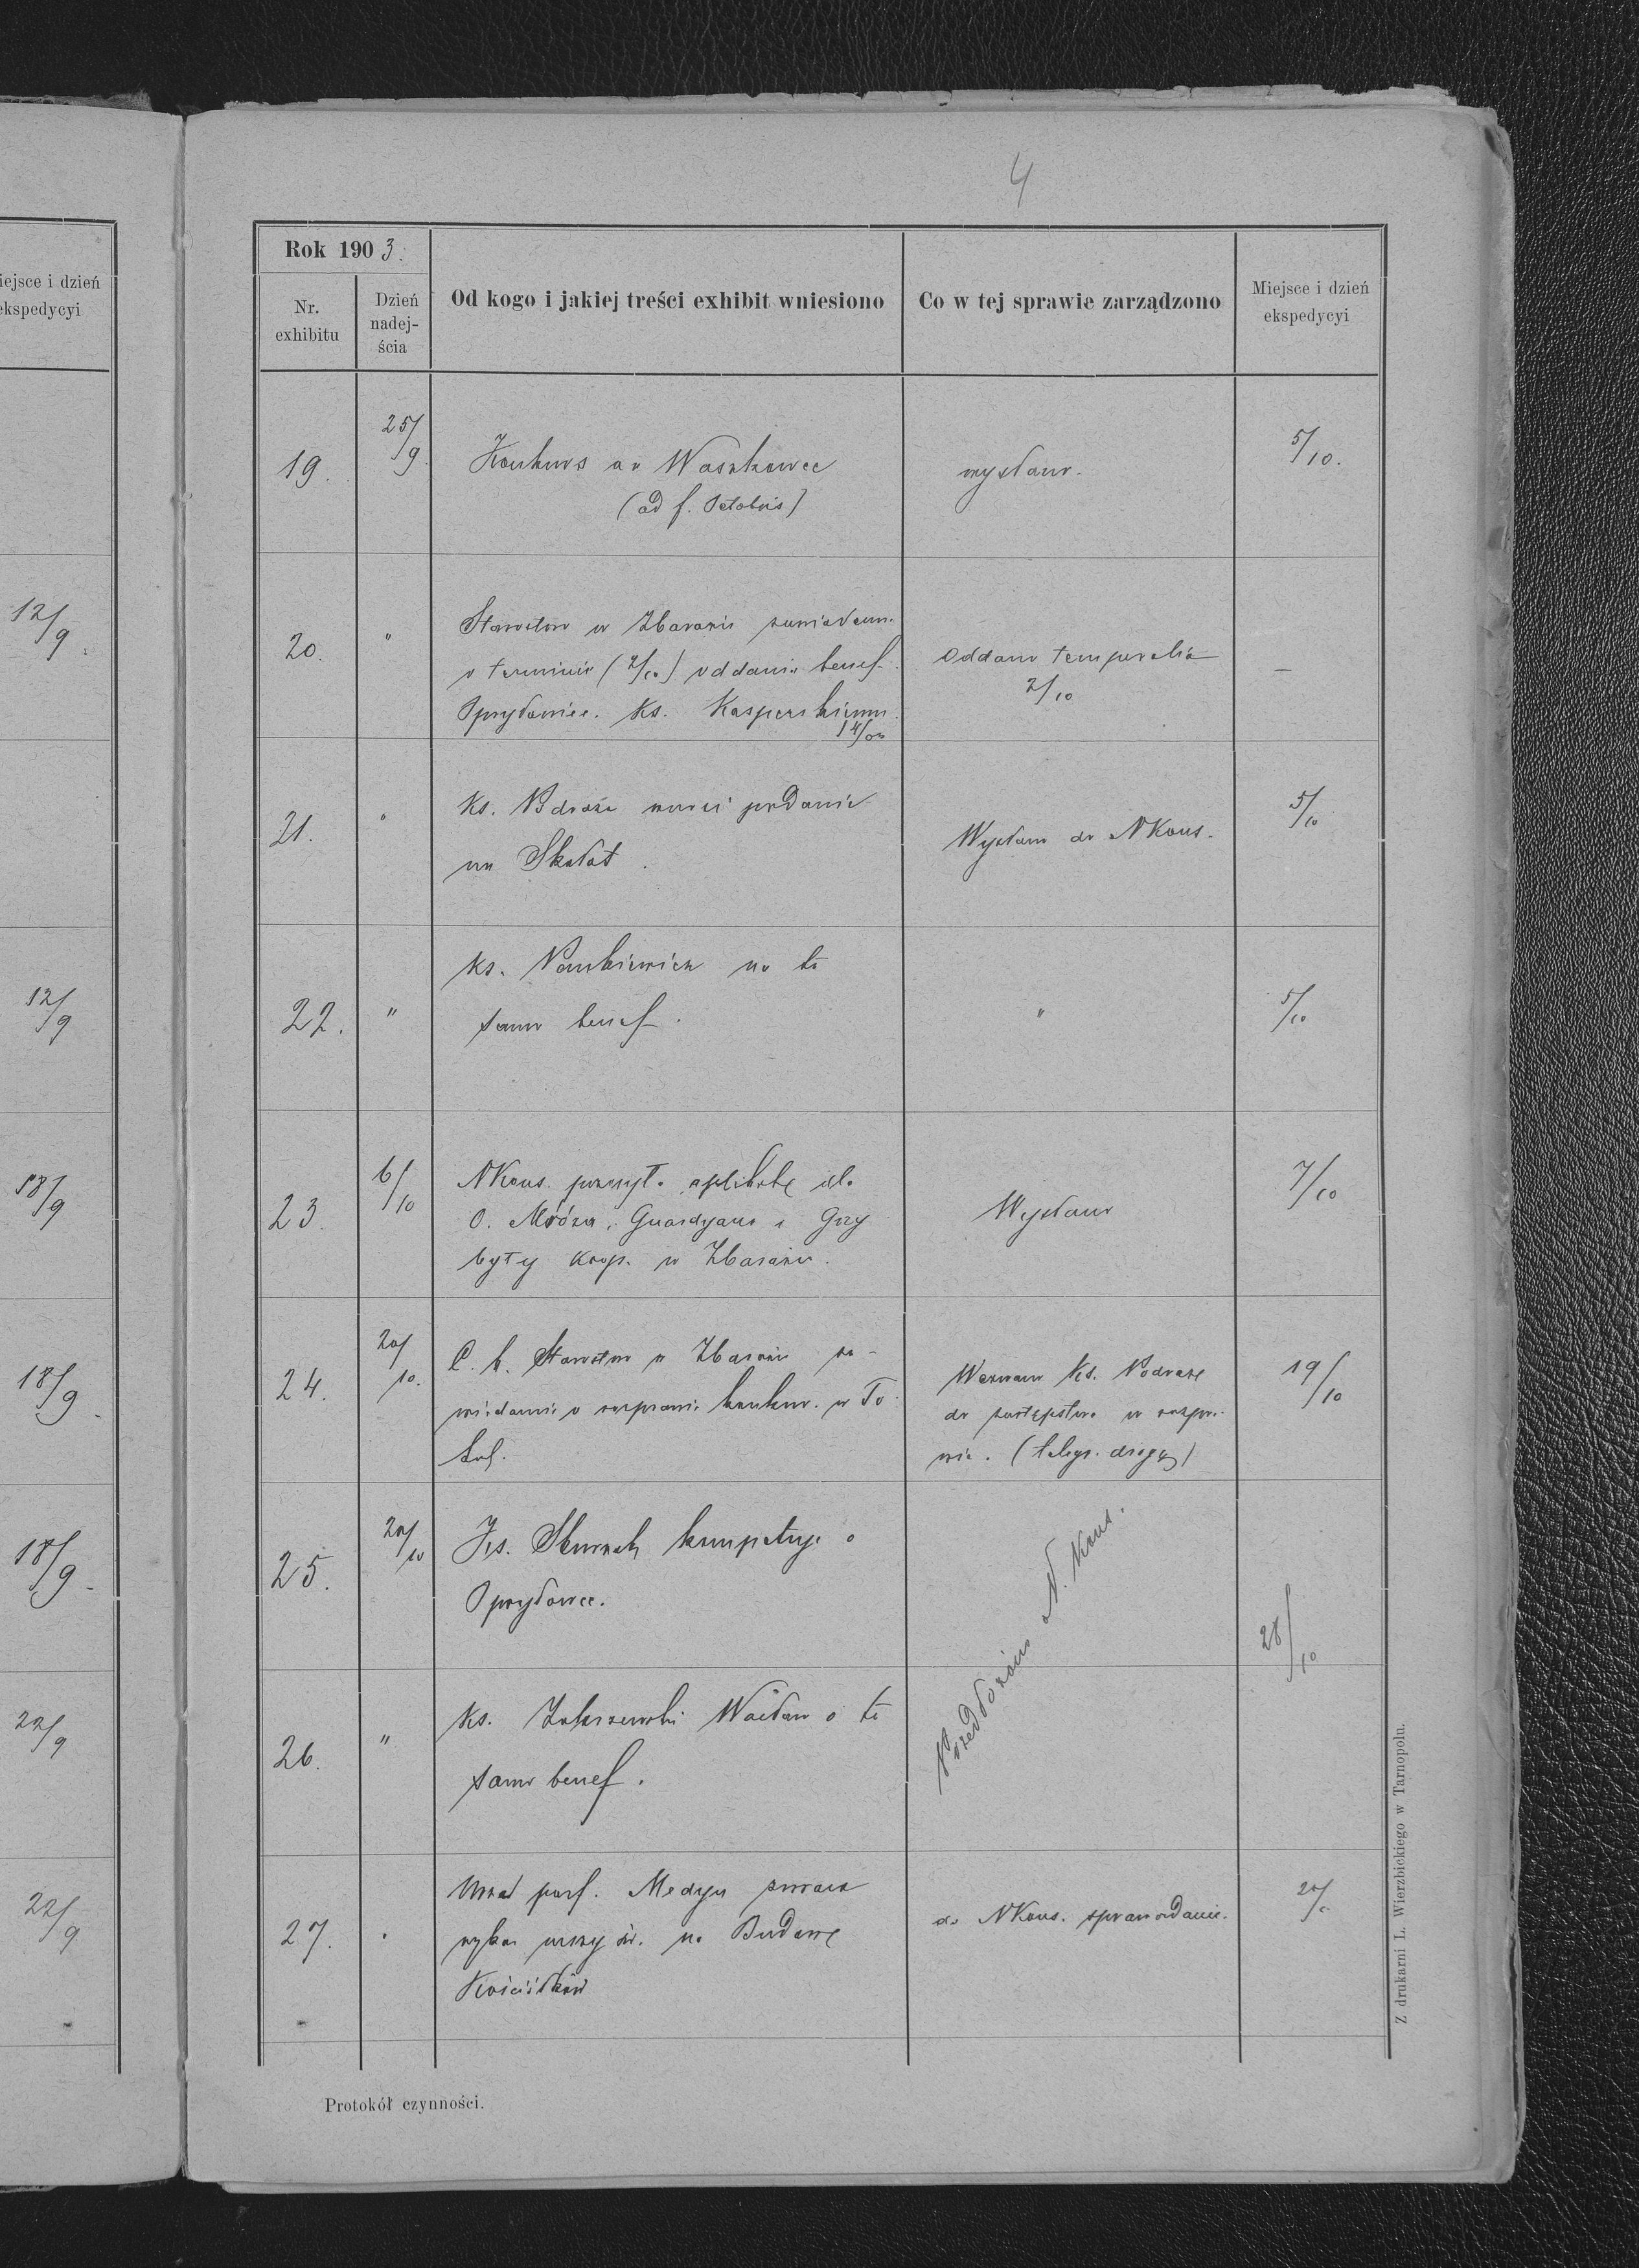 iejsce i dzień
ekspedycyi
12/9.
12/9
18/9
18/9.
18/9.
22/9
22/9
4
Rok 1903.
Nr. exhibitu
Dzień nadejścia
Od kogo i jakiej treści exhibit wniesiono
Co w tej sprawie zarządzono
Miejsce i dzień
ekspedycyi
19.
25/9.
Konkurs na Waszkowce
(ad f.
wysłano.
5/10.
20.
"
Starostwo w Zbarażu zawiadam.
o terminie (2/10) oddania benef.
Opryłowiec. Ks. Kasperskiemu
Oddano temporalia
2/10
—
21.
"
Ks. wnosi podanie
na Skałat.
Wysłano do NKons.
5/10
22.
"
Ks. Pankiewicz na to
samo benef.
"
5/10
23.
6/10
NKons. przesyła aplikatę dla
O. Mroza, Guardyana i Grzy
były koop. w Zbarażu.
Wysłano
7/10
24.
20/10.
C. k. Starostwo w Zbarażu za-
wiadamia o rozprawie konkur. w To
kach.
Wezwano Ks. Podrazę
do zastępstwa w rozpra-
wie. (telegr. drogą)
19/10
25.
20/10
Ks. kompetuje o
Opryłowce.
Przedłożono N. Kons.
28/10
26.
"
Ks. Zakrzewski Wacław o to
samo benef.
27.
Urząd par. Medyn zwraca
wykaz na Budowę
Kościółków
do NKons. sprawozdanie.
Z drukarni L. Wierzbickiego w Tarnopolu.
Protokół czynności.